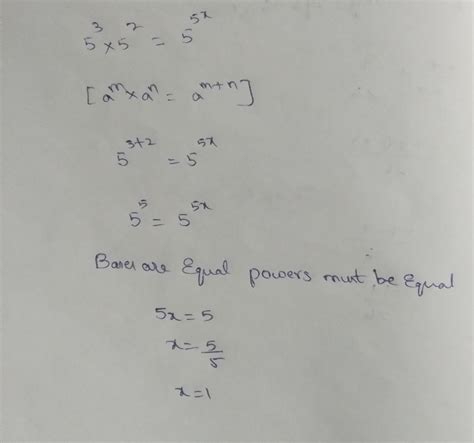 5³ × 5² = 5⁵ˣ
[aᵐ × aⁿ = aᵐ⁺ⁿ]
5³⁺² = 5⁵ˣ
5⁵ = 5⁵ˣ
Bases are Equal powers must be Equal
5x = 5
x = 5/5
x = 1